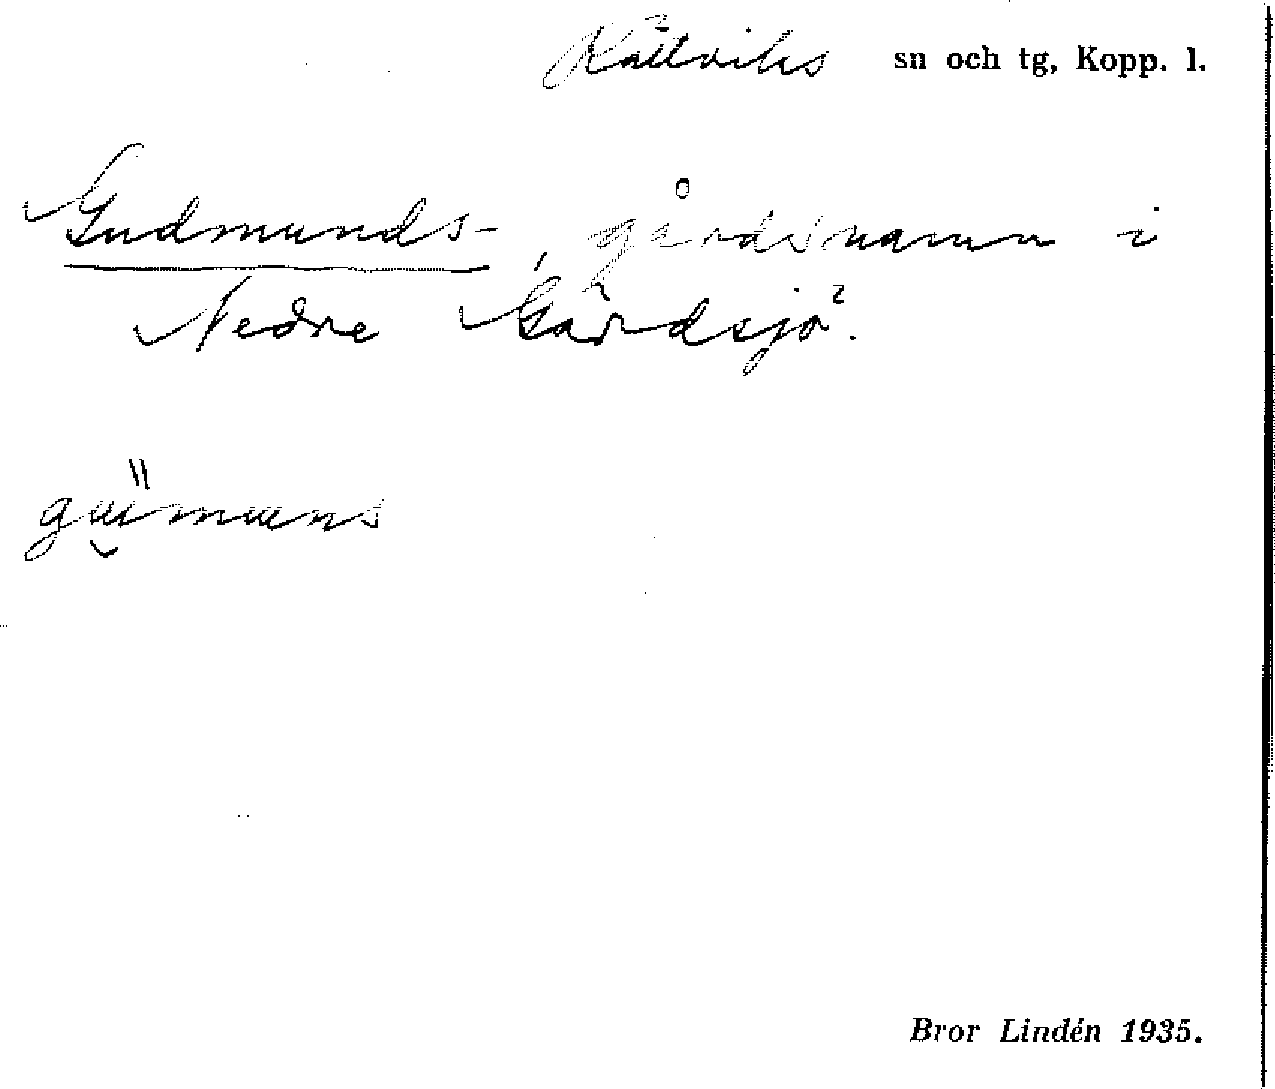 Rättviks sn och tg, Kopp. l.
Gudmunds-, gårdsnamn i
Nedre Gärdsjö.
gu̯i̋muns
Bror Lindén 1935.